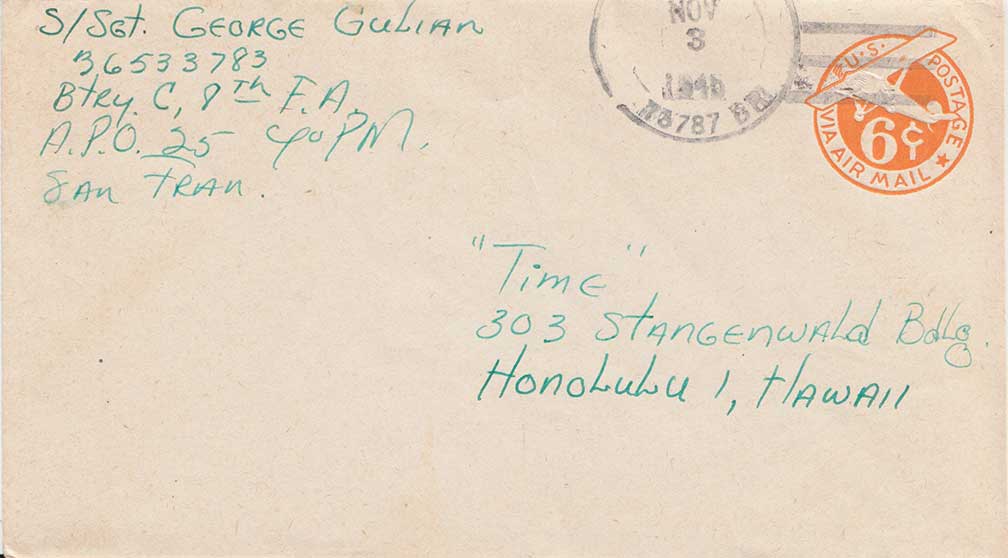 S/Sgt. GEORGE GULIAN
36533783
Btry. C, 8th F.A.
A.P.O. 25 c/o PM,
SAN FRAN.
NOV
3
1945
U.S. POSTAGE
6¢
VIA AIR MAIL
"TIME"
303 STANGENWALd Bdlg.
HONOLULU 1, HAWAII